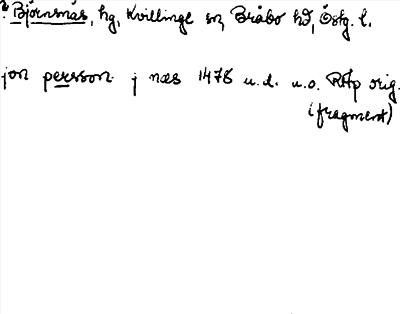 ? Björnsnäs, hg, Kvillinge sn, Bråbo hd, Östg. l.
jon person j næs 1478 u.d. u.o. RAp orig.
(fragment)